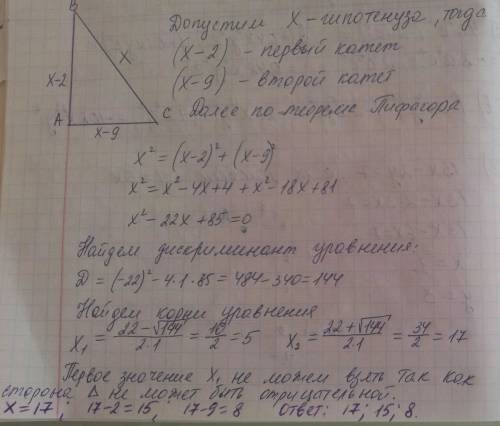 B
Допустим X - гипотенуза, тогда
(x-2) - первый катет
X
x-2
(x-9) - второй катет
A
C
Далее по теореме Пифагора
x-9
x² = (x-2)² + (x-9)²
x² = x² - 4x + 4 + x² - 18x + 81
x² - 22x + 85 = 0
Найдем дискриминант уравнения:
D = (-22)² - 4·1·85 = 484 - 340 = 144
Найдем корни уравнения
X₁ = (22 - √144)/(2·1) = 10/2 = 5 X₂ = (22 + √144)/(2·1) = 34/2 = 17
Первое значение X₁ не можем взять так как
сторона Δ не может быть отрицательной.
X = 17; 17-2=15; 17-9=8 Ответ: 17; 15; 8.